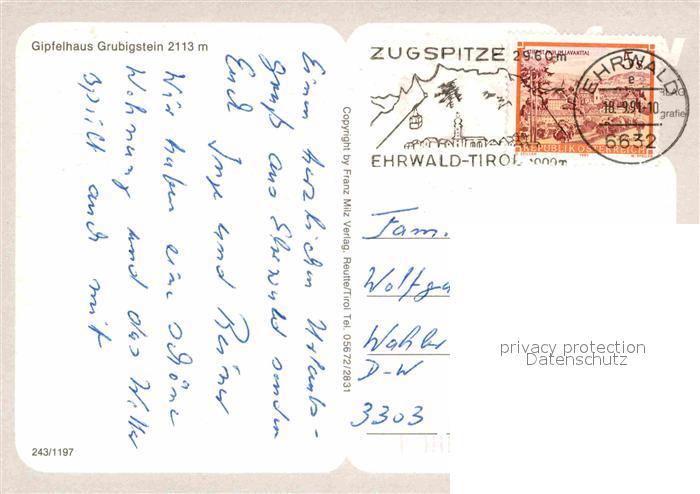 Gipfelhaus Grubigstein 2113 m
Einen herzlichen Urlaubs-
gruß aus Ehrwald senden
Euch
Inge und Reiner
Wir haben eine schöne
Wohnung und das Wetter
spielt auch mit
243/1197
Copyright by Franz Milz Verlag, Reutte/Tirol Tel. 05672/2831
ZUGSPITZE 2960m
EHRWALD-TIROL 1000m
5S
REPUBLIK ÖSTERREICH
EHRWALD
18.-9.91-10
e
6632
Fam.
Wolfga
Wahler
D-W
3303
privacy protection
Datenschutz